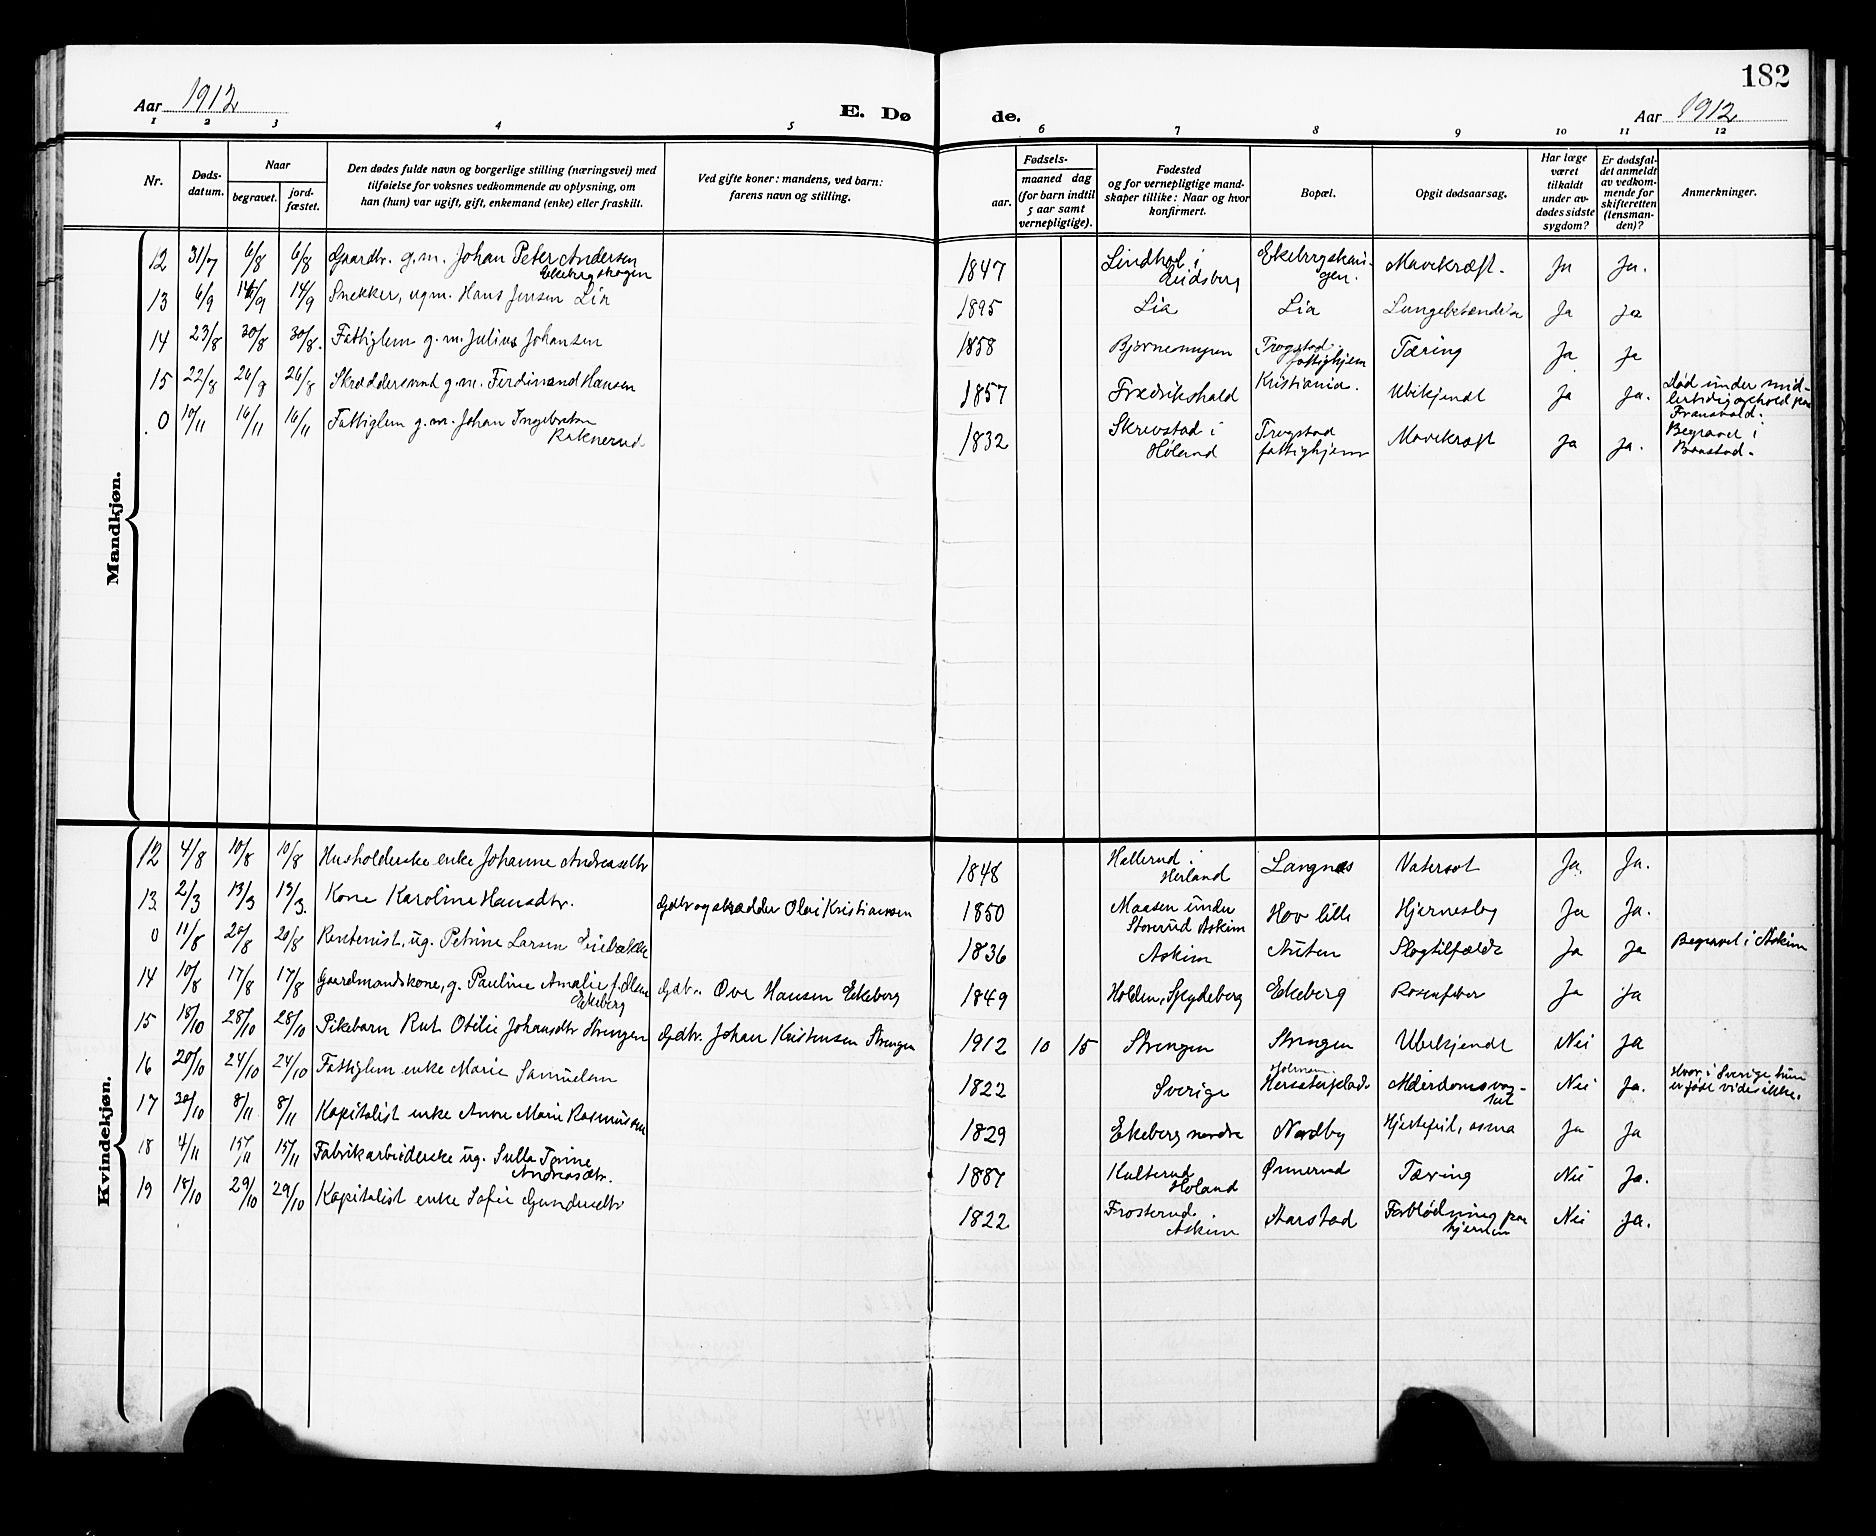 182
Aar 1912
E. Dø
de.
Aar 1912
1 2 3 4 5 6 7 8 9 10 11 12
Nr.
Døds-
datum.
Naar
begravet.
jord-
fæstet.
Den dødes fulde navn og borgerlige stilling (næringsvei) med
tilføielse for voksnes vedkommende av oplysning, om
han (hun) var ugift, gift, enkemand (enke) eller fraskilt.
Ved gifte koner: mandens, ved barn:
farens navn og stilling.
Fødsels-
aar.
maaned dag
(for barn indtil
5 aar samt
vernepligtige).
Fødested
og for vernepligtige mand-
skaper tillike: Naar og hvor
konfirmert.
Bopæl.
Opgit dødsaarsag.
Har læge
været
tilkaldt
under av-
dødes sidste
sygdom?
Er dødsfal-
det anmeldt
av vedkom-
mende for
skifteretten
(lensman-
den)?
Anmerkninger.
Mandkjøn.
12 31/7 6/8 6/8 Gaardbr. g.m. Johan Peter Andersen 1847 Lindhol i Ekebergshau- Mavekræft. Ja Ja.
Ekebergshagen Eidsberg gen.
13 6/9 14/9 14/9 Snekker, ugm. Hans Jensen Lia 1895 Lia Lia Lungebetændelse Ja ja
14 23/8 30/8 30/8. Fattiglem g.m. Julius Johansen 1858 Bjørnemyren Trøgstad Tæring Ja ja
fattighjem
15 22/8 26/8 26/8 Skræddersvend g.m. Ferdinand Hansen 1857 Fredrikshald Kristiania. Ubekjendt Ja Ja. Død under mid-
lertidig ophold paa
0 10/11 16/11 16/11 Fattiglem g.m. Johan Ingebretsen 1832 Skrevstad i Trøgstad Mavekræft Ja ja. Begravet i
Raknerud Høland fattighjem Baastad.
Kvindekjøn.
12 4/8 10/8 10/8 Husholderske enke Johanne Andreasdtr 1848 Hellerud i Langnes Vatersot Ja. Ja.
Herland
13 2/3 13/3 13/3. Kone Karoline Hansdtr. Gdbr og skrædder Olai Kristiansen 1850 Maasen under Hov lille Hjernesleg Ja Ja.
Storerud Askim
0 11/8 20/8 20/8 Rentenist, ug. Petrine Larsen 1836 Askim Auten Slagtilfælde Ja Ja Begravet i Askim
14 10/8 17/8 17/8 Gaardmandskone, g. Pauline Amalie f. Olsen Gdbr. Ove Hansen Ekeberg 1849 Holden, Spydeberg Ekeberg Rosenfeber Ja Ja
Ekeberg
15 18/10 28/10 28/10 Pikebarn Rut Otilie Johansdtr Strengen Gdbr. Johan Kristensen Strengen 1912 10 15 Strengen Strengen Ubekjendt Nei Ja
16 20/10 24/10 24/10 Fattiglem enke Marie Samuelsen 1822 Sverige Alderdomsvag- Nei Ja. Hvor i Sverige hun
het er født vides ikke.
17 30/10 8/11 8/11 Kapitalist enke Anne Marie Rasmussen 1829 Ekeberg nordre Nordby Hjertefeil, asma Ja Ja
18 4/11 15/11 15/11 Fabrikarbeiderske ug. Sulla Tonine 1887 Kulterud Ømerud Tæring Nei Ja.
Andreasdtr. Høland
19 18/10 29/10 29/10 Kapitalist enke Sofie Gundersdtr 1822 Frosterud Aarstad Forblødning paa Nei Ja.
Askim hjernen